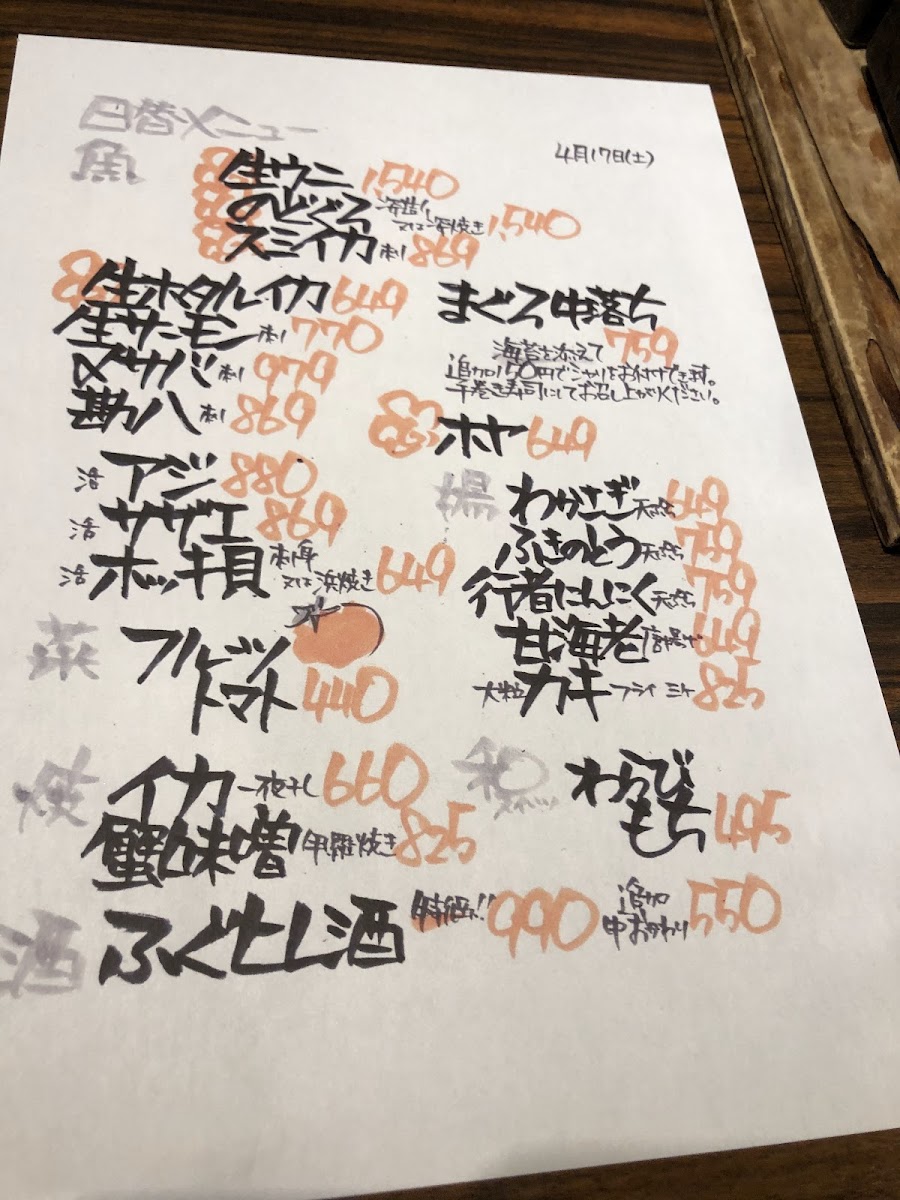 日替メニュー
4月17日(土)
魚
生ウニ 1,540
のどぐろ 又は 焼き 1,540
スミイカ 刺 869
生ホタルイカ 649
生サーモン 刺 770
〆サバ 刺 979
勘八 刺 869
活 アジ 880
活 サザエ 869
活 ホッキ貝 刺身 又は 浜焼き 649
まぐろ中落ち
海苔を添えて 759
追加150円でシャリをお付けできます。
手巻き寿司にしてお召し上がりください。
ホヤ 649
菜
フルーツ
トマト 440
揚 わかさぎ 天ぷら 649
ふきのとう 天ぷら 759
行者にんにく 天ぷら 759
甘海老 唐揚げ 649
大粒 カキ フライ 825
焼 イカ 一夜干し 660
蟹味噌 甲羅焼き 825
和 スイーツ わらび
もち 495
酒 ふぐヒレ酒 特級!! 990
追加
中おかわり 550